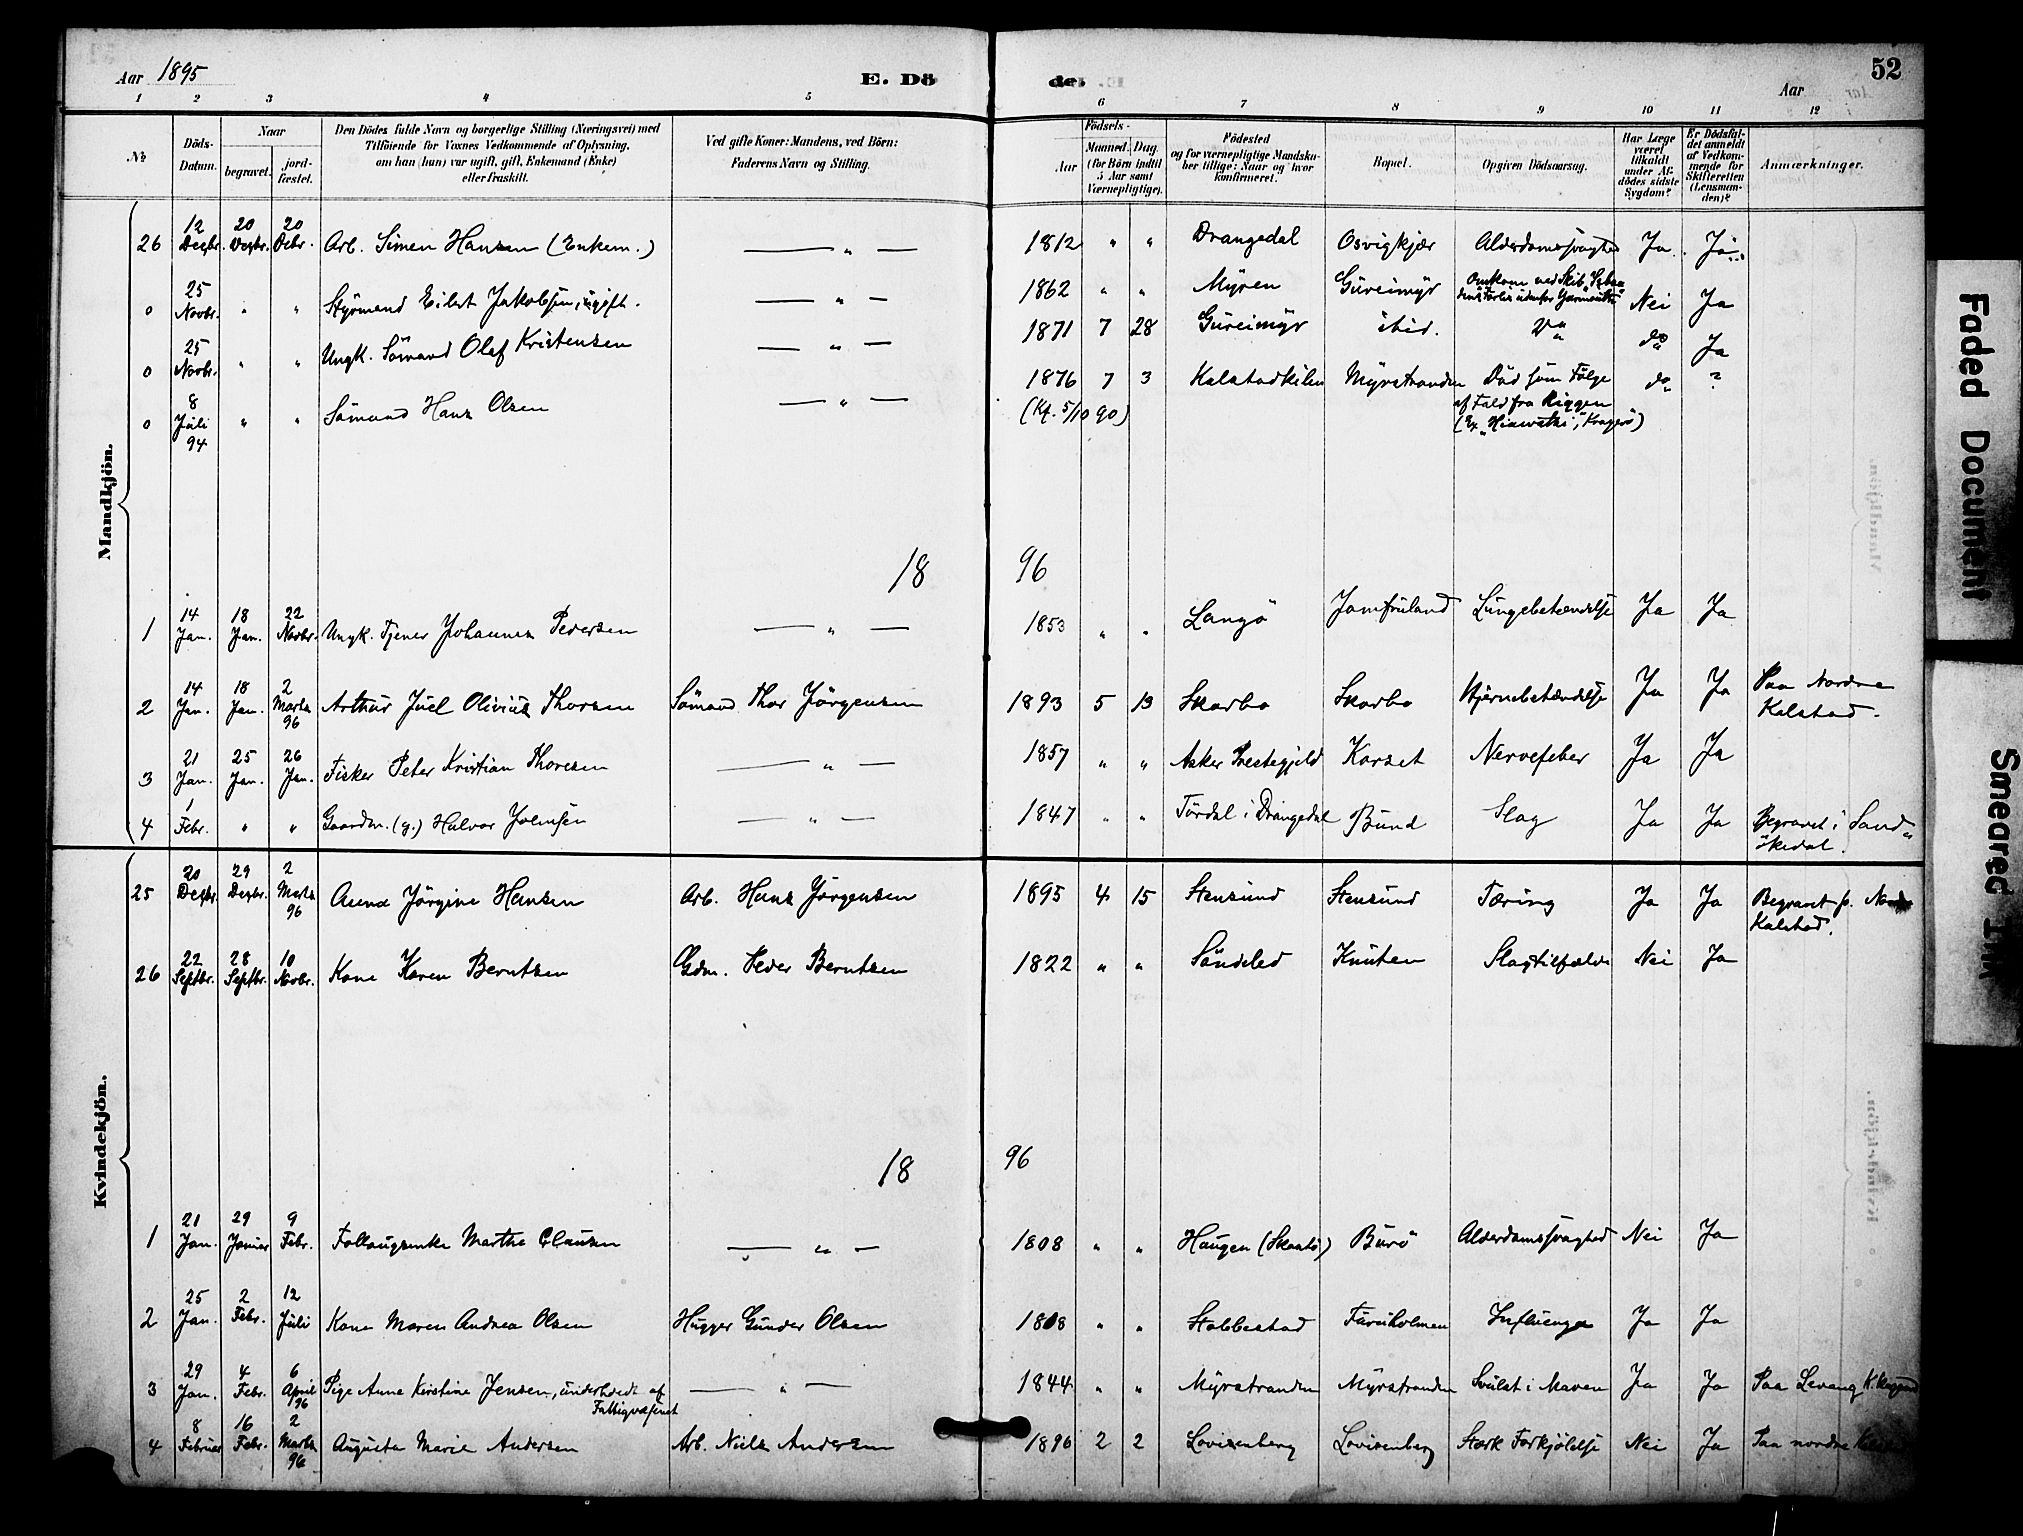 Aar 1895
E. Dö
de.
Aar
52
1 2 3 4 5 6 7 8 9 10 11 12
No
Döds-Datum.
Naar
begravet.
jord-fæstet.
Den Dödes fulde Navn og borgerlige Stilling (Næringsvei) med
Tilföiende for Voxnes Vedkommende af Oplysning,
om han (hun) var ugift, gift, Enkemand (Enke)
eller fraskilt.
Ved gifte Koner: Mandens, ved Börn:
Faderens Navn og Stilling.
Födsels-
Aar
Maaned. Dag.
(for Börn indtil
5 Aar samt
Værnepligtige).
Födested
og for værnepligtige Mandska-
ber tillige: Naar og hvor
konfirmeret.
Bopæl.
Opgiven Dödsaarsag.
Har Læge
været
tilkaldt
under Af-
dødes sidste
Sygdom?
Er Dödsfal-
det anmeldt
af Vedkom-
mende for
Skifteretten
(Lensman-
den)?
Anmærkninger.
Mandkjön.
26 12 Dezbr. 20 Dezbr. 20 Debr. Arb. Simen Hansen (Enkem.) — " — 1812 " " Drangedal Osvigkjær Alderdomssvaghed Ja Ja
0 25 Novbr. " " Styrmand Eilert Jakobsen, ugift. — " — 1862 " " Myren Gureimyr Omkom ved Skib
Forlis udenfor Yarmouth Nei Ja
0 25 Novbr. " " Ungk. Sömand Olaf Kristensen — " — 1871 7 28 Gureimyr ibid. do do Ja
0 8 Juli 94 " " Sömand Hans Olsen — " — 1876 7 3 Kalstadkilen Myrstranden Död som Fölge do ?
(Kf. 5/10 90) af Fald fra Riggen
(Ex "Hiawatha", Kragerö)
18 96
1 14 Jan. 18 Jan. 22 Novbr. Ungk. Tjener Johannes Pedersen — " — 1853 " " Langö Jomfruland Lungebetændelse Ja Ja
2 14 Jan. 18 Jan. 2 Marts 96 Arthur Juel Olivius Thorsen Sömand Thor Jörgensen 1893 5 13 Skarbo Skarbo Hjernebetændelse Ja Ja Paa Nordre
Kalstad.
3 21 Jan. 25 Jan. 26 Jan. Fisker Peter Kristian Thoresen — " — 1857 " " Asker Prestegjeld Korset Nervefeber Ja Ja
4 1 Febr. " " Gaardm. (g.) Halvor Joensen — " — 1847 " " Tördal i Drangedal Bund Slag Ja Ja Begravet i Sand-
ökedal.
Kvindekjön.
25 20 Dezbr. 29 Dezbr. 2 Marts 96 Anna Jörgine Hansen Arb. Hans Jörgensen 1895 4 15 Stensund Stensund Tæring Ja Ja Begravet p. Nordre
Kalstad.
26 22 Septbr. 28 Septbr. 10 Novbr. Kone Karen Berntsen Gdm. Peder Berntsen 1822 " " Söndeled Knuten Slagtilfælde Nei Ja
18 96
1 21 Jan. 29 Januar 9 Febr. Follaugsenke Marthe Clausen — " — 1808 " " Haugen (Skaatö) Burö Alderdomssvaghed Nei Ja
2 25 Jan. 2 Febr. 12 Juli Kone Maren Andrea Olsen Hugger Gunder Olsen 1808 " " Stabbestad Furuholmen Influenza Ja Ja
3 29 Jan. 4 Febr. 6 April 96 Pige Anne Kirstine Jensen, underholdt af — " — 1844 " " Myrstranden Myrstranden Svulst i Maven Ja Ja Paa Levang
Fattigvæsenet
4 8 Februar 16 Febr. 2 Marts 96 Augusta Marie Andersen Arb. Niels Andersen 1896 2 2 Lovisenberg Lovisenberg Stærk Forkjölelse Nei Ja Paa nordre
Faded Document
Smeared Ink